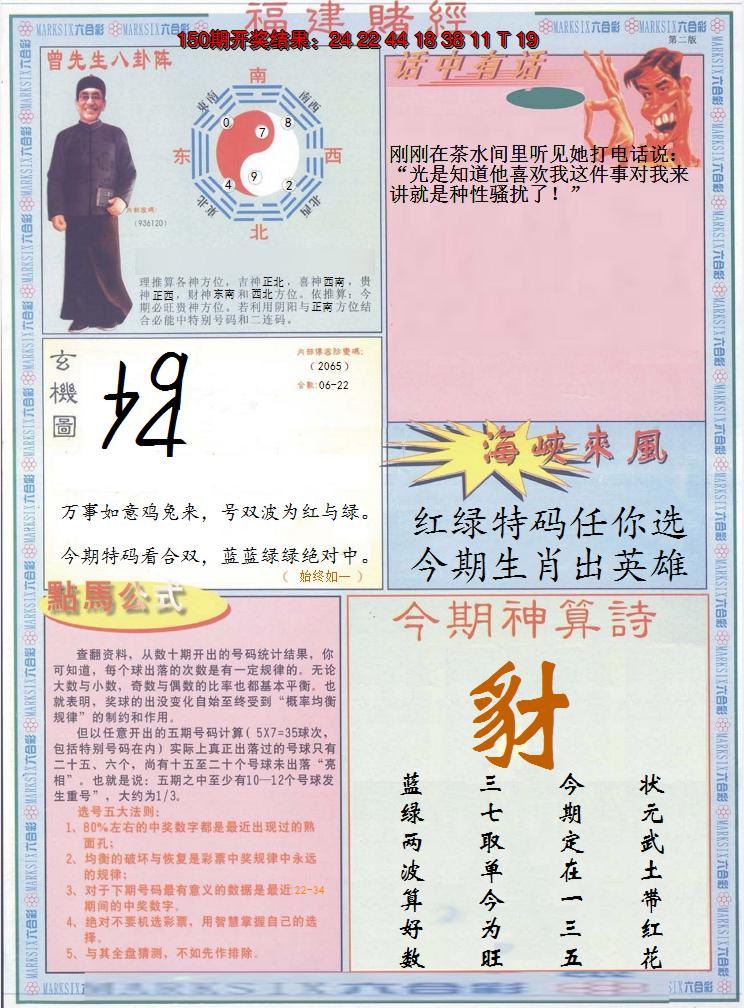 福建賭經
150期开奖结果：24 22 44 18 38 11 T 19
MARKSIX六合彩
第二版
曾先生八卦阵
南
東南
南西
0
7
8
东
西
4
9
2
東北
北西
北
内部密碼:
(936120)
理推算各神方位，吉神正北，喜神西南，贵
神正西，财神东南和西北方位。依推算：今
期必旺贵神方位。若利用阴阳与正南方位结
合必能中特别号码和二连码。
话中有话
刚刚在茶水间里听见她打电话说：
“光是知道他喜欢我这件事对我来
讲就是种性骚扰了！”
玄機圖
(2065)
合数:06-22
万事如意鸡兔来，号双波为红与绿。
今期特码看合双，蓝蓝绿绿绝对中。
（ 始终如一 ）
海峡來風
红绿特码任你选
今期生肖出英雄
點馬公式
查翻资料，从数十期开出的号码统计结果，你
可知道，每个球出落的次数是有一定规律的。无论
大数与小数，奇数与偶数的比率也都基本平衡。也
就表明，奖球的出没变化自始至终受到“概率均衡
规律”的制约和作用。
但以任意开出的五期号码计算( 5X7=35球次，
包括特别号码在内）实际上真正出落过的号球只有
二十五、六个，尚有十五至二十个号球未出落“亮
相”。也就是说：五期之中至少有10—12个号球发
生重号”，大约为1/3。
选号五大法则：
1、80%左右的中奖数字都是最近出现过的熟
面孔；
2、均衡的破坏与恢复是彩票中奖规律中永远
的规律；
3、对于下期号码最有意义的数据是最近22-34
期间的中奖数字。
4、绝对不要机选彩票，用智慧掌握自己的选
择。
5、与其全盘猜测，不如先作排除。
今期神算詩
豺
状元武土带红花
今期定在一三五
三七取单今为旺
蓝绿两波算好数